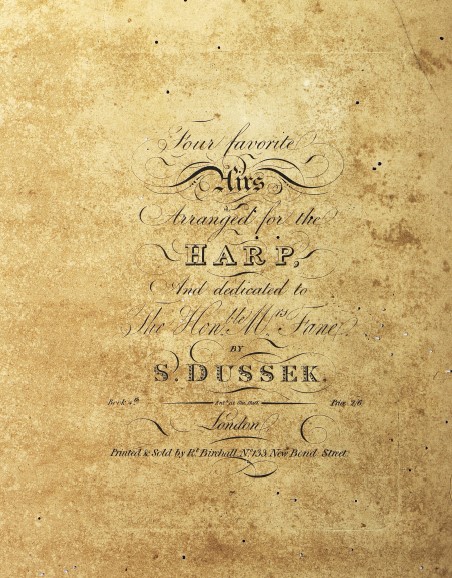 Four favorite
Airs
Arranged for the
HARP,
And dedicated to
The Hon.ble Mrs Fane
BY
S. DUSSEK.
Book 4th Ent.d at Sta. Hall. Price 2/6
London
Printed & Sold by R.t Birchall No. 133 New Bond Street.